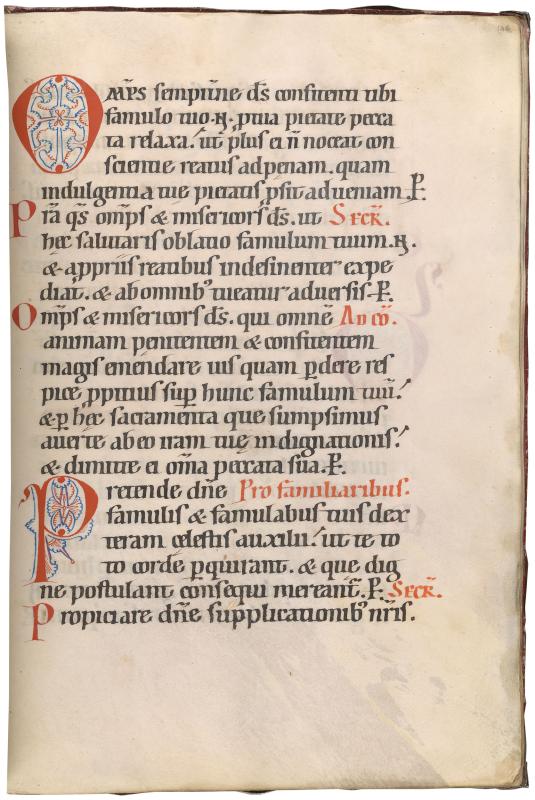 OMPS sempitne ds confitenti tibi
famulo tuo .N. ptua pietate pecca
ta relaxa. ut plus ei n noceat con
scientie reatus ad penam. quam
indulgentia tue pietatis psit ad ueniam. P.
Pra qs omps & misericors ds. ut SECR.
hec salutaris oblatio famulum tuum .N.
& appriis reatibus indesinenter expe
diat. & ab omnib; tueatur aduersis. P.
Omps & misericors ds. qui omne AD CO.
animam penitentem & confitentem
magis emendare uis quam pdere res
pice ppitius sup hunc famulum tuu.
& p hec sacramenta que sumpsimus
auerte ab eo iram tue indignationis.
& dimitte ei oma peccata sua. P.
Pretende dne Pro familiaribus.
famulis & famulabus tuis dex
teram celestis auxilii. ut te to
to corde pquirant. & que dig
ne postulant consequi mereant. P. SECR.
Propiciare dne supplicationib; nris.